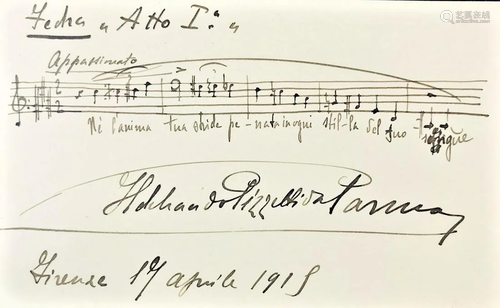 Fedra "Atto I.°"
Appassionato
Né l'anima tua stride pe-nata in ogni stil-la del tuo sangue
Ildebrando Pizzetti da Parma
Firenze 17 aprile 1915